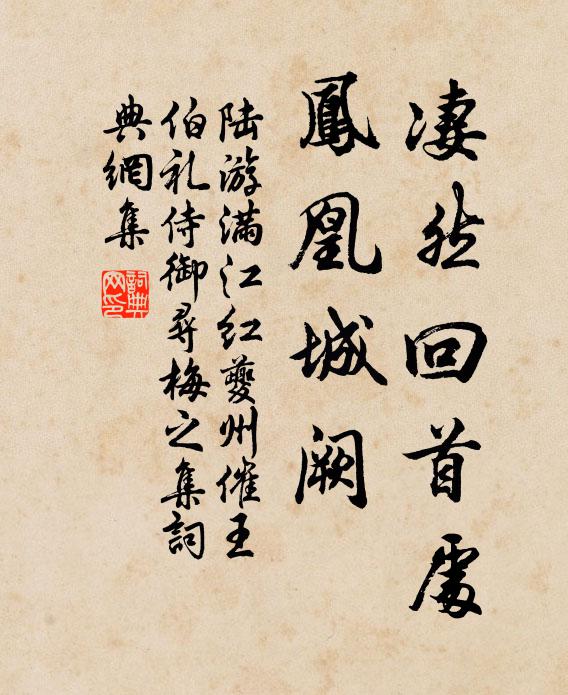 凄然回首處
鳳凰城闕
陆游满江红夔州催王
伯礼侍御尋梅之集詞
典網集
詞典网印